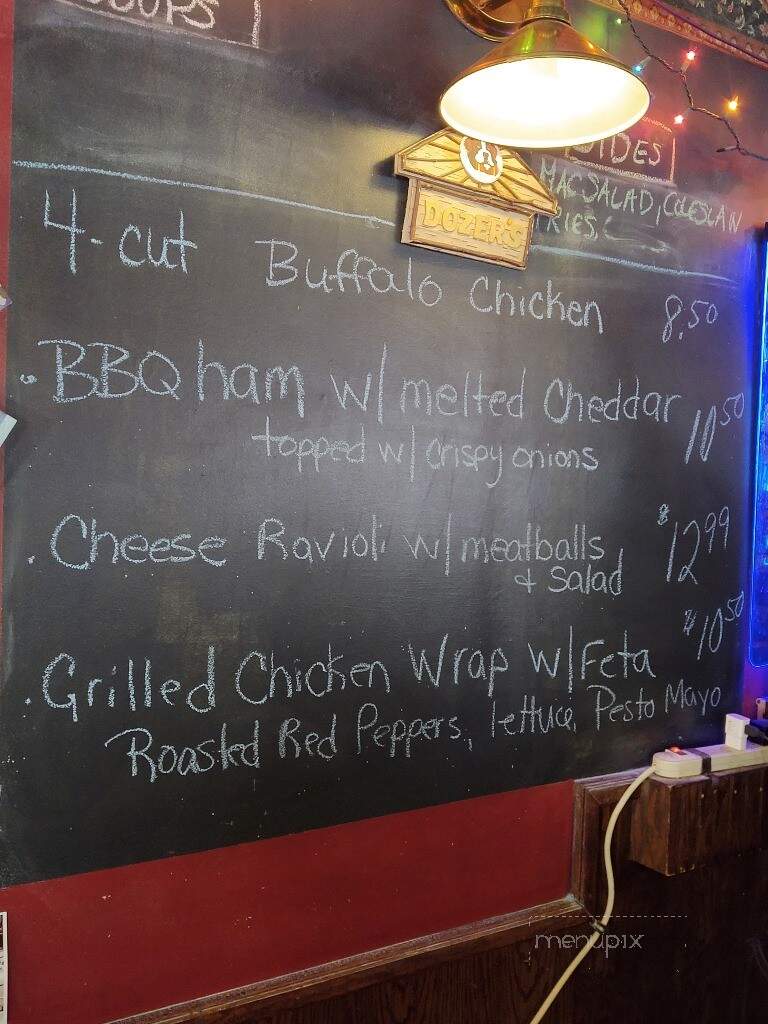 SOUPS
SIDES
MAC SALAD, COLESLAW
FRIES,
DOZER'S
4-cut Buffalo Chicken 8.50
. BBQ ham w/ melted Cheddar 10 50
topped w/ Crispy onions
. Cheese Ravioli w/ meatballs $12 99
+ Salad
. Grilled Chicken Wrap w/ Feta $10 50
Roasted Red Peppers, lettuce, Pesto Mayo
menupix